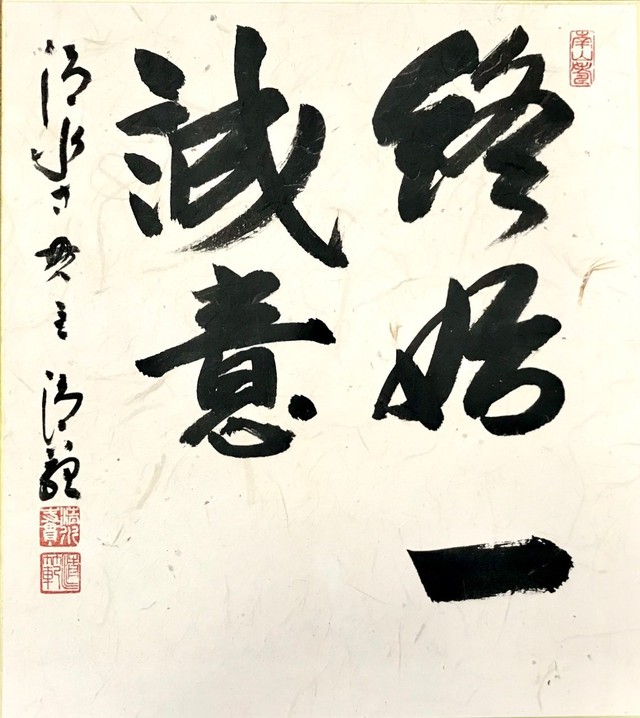 終始一
誠意
清水寺貫主 清範